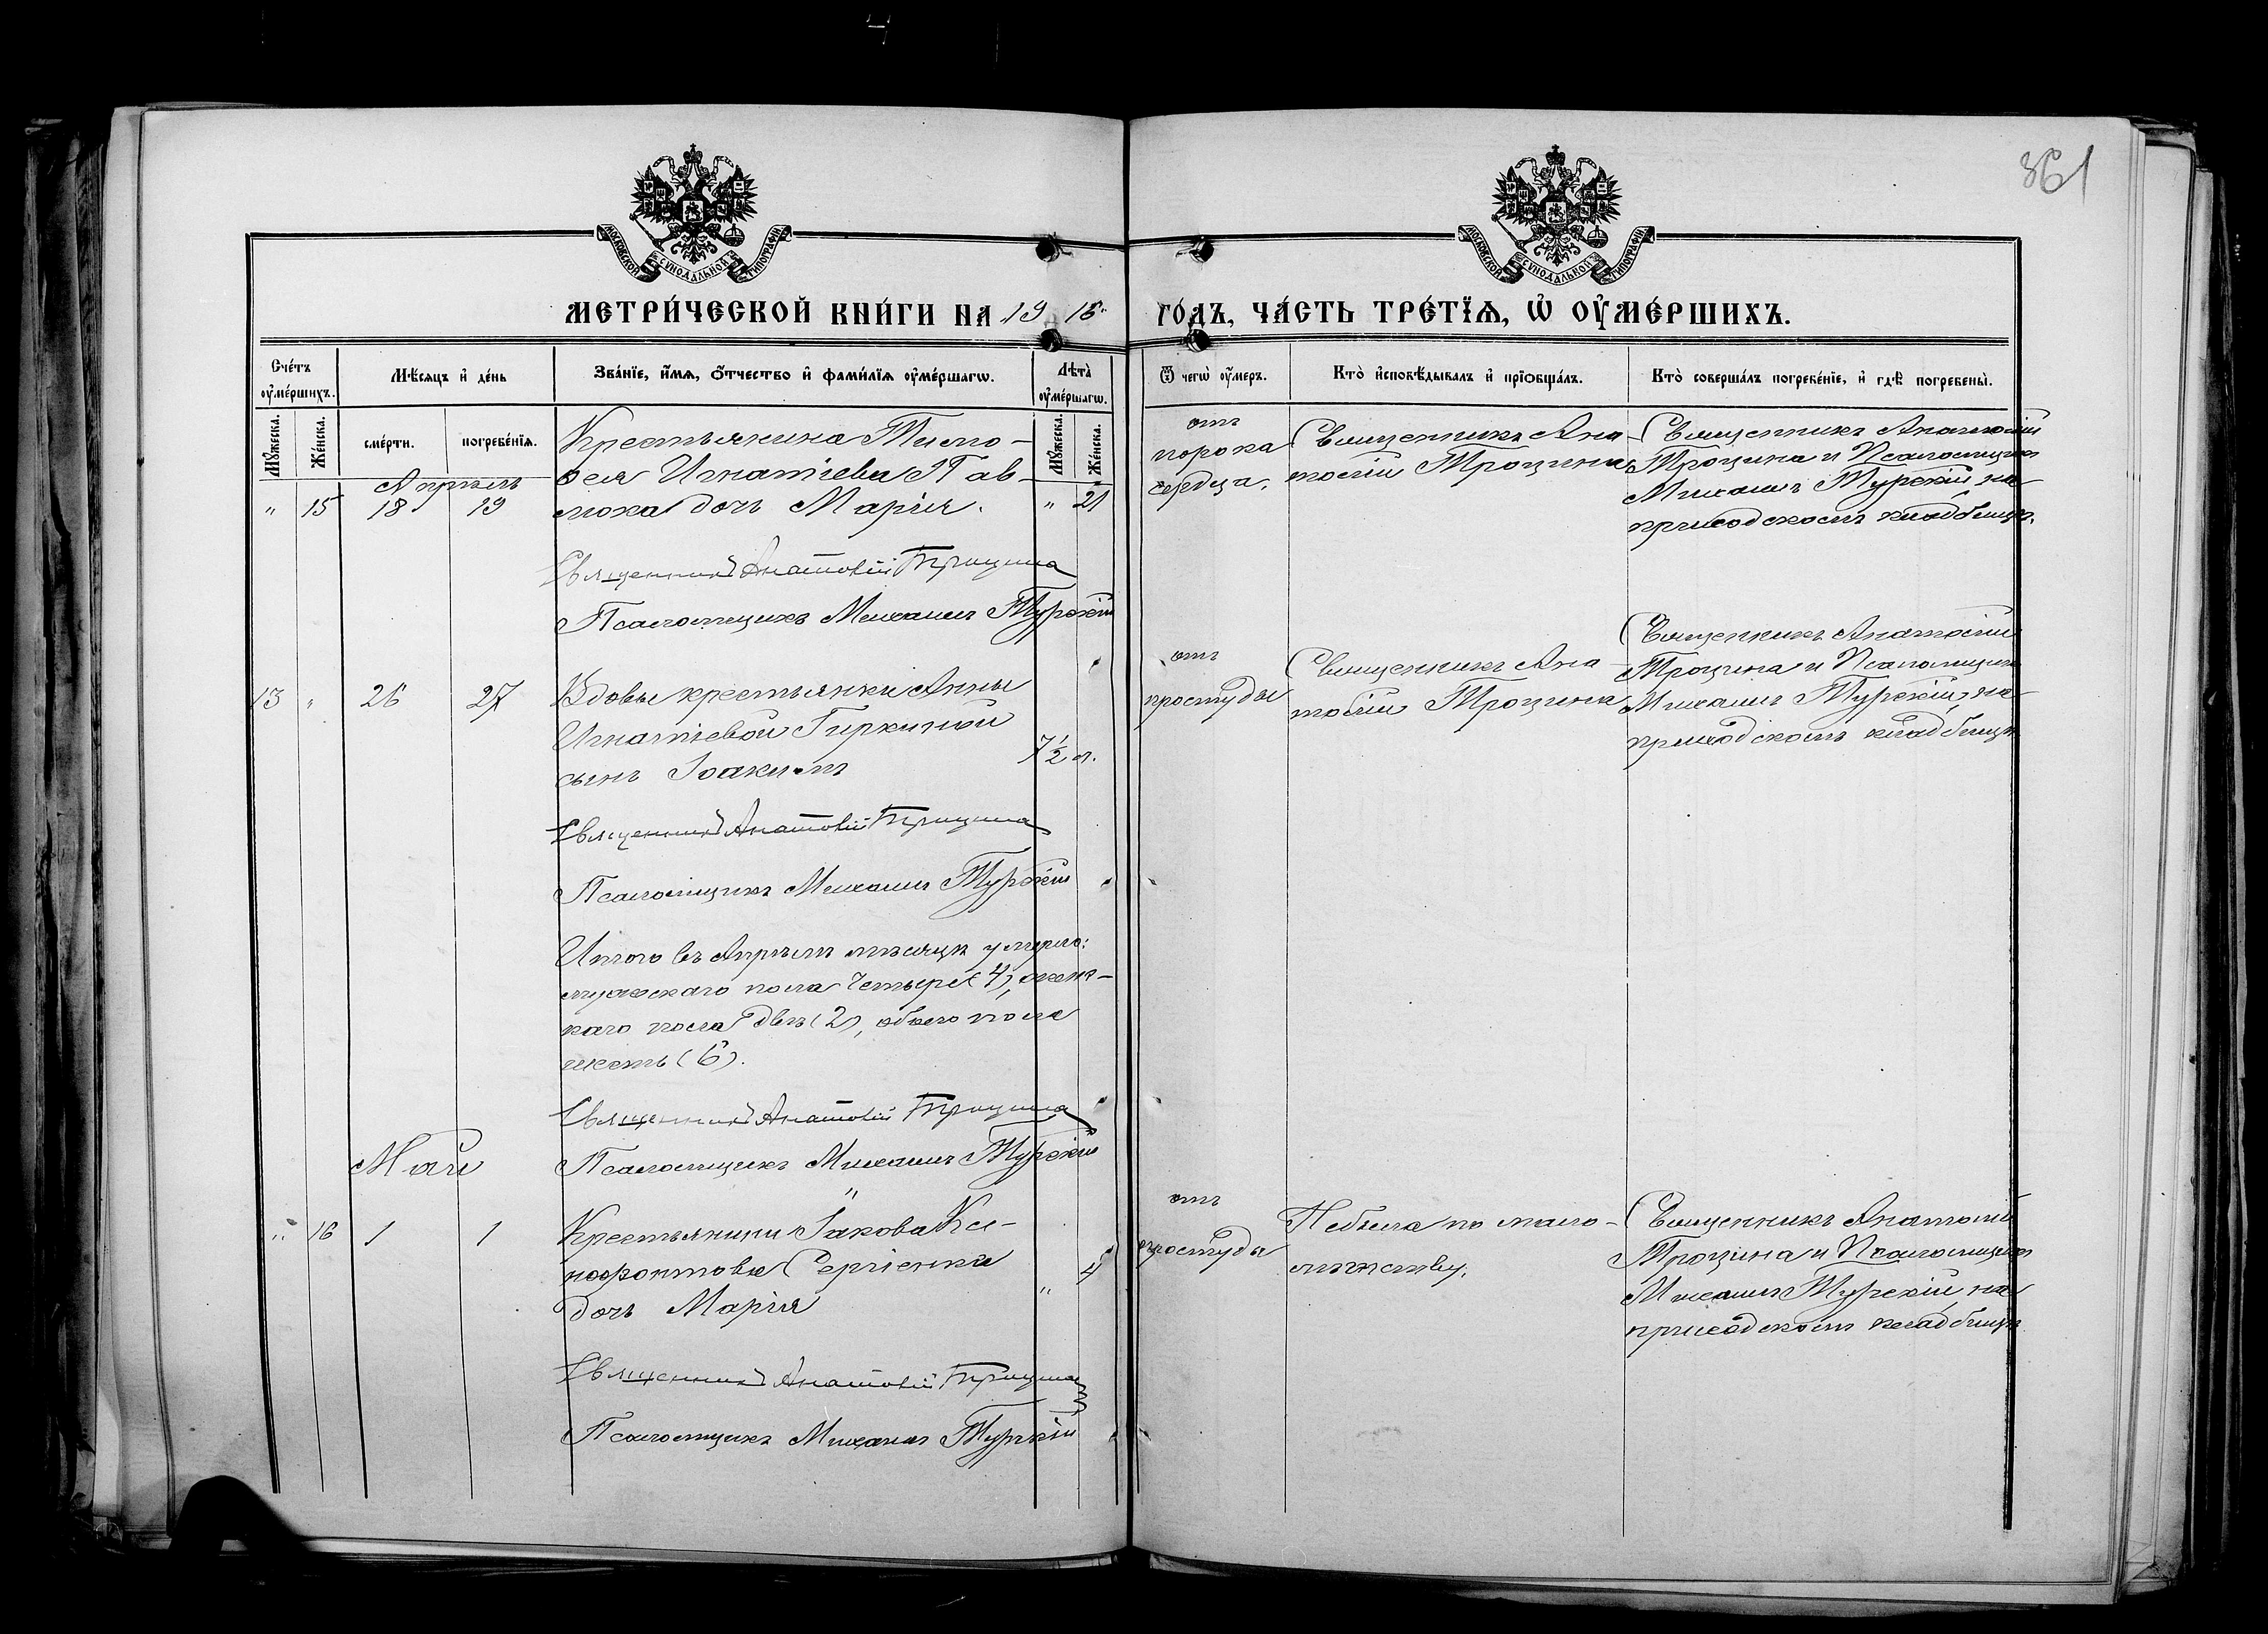 361
МОСКОВСКОЙ СУНОДАЛЬНОЙ ТИПОГРАФІИ
МОСКОВСКОЙ СУНОДАЛЬНОЙ ТИПОГРАФІИ
МЕТРИ́ЧЕСКОЙ КНИ́ГИ НА 1916
ГО́ДЪ, ЧА́СТЬ ТРЕ́ТЇѦ, Ѡ҆ ОУ҆МЕ́РШИХЪ.
Сче́тъ оу҆ме́ршихъ.
Мѣ́сѧцъ и҆ де́нь
Зва́нїе, и҆́мѧ, ѻ҆́тчество и҆ фами́лїѧ оу҆ме́ршагѡ.
Лѣ̀та оу҆ме́ршагѡ.
Ѿ чегѡ̀ оу҆́меръ.
Кто̀ и҆сповѣ́дывалъ и҆ прїѻбща́лъ.
Кто̀ соверша́лъ погребе́нїе, и҆ гдѣ̀ погребены̀.
Мꙋ́жеска.
Же́нска.
сме́рти.
погребе́нїѧ.
Мꙋ́жеска.
Же́нска.
Апрѣль
" 15 18 19
Крестьянина Тимо-
фея Игнатіева Пав-
люка дочь Марія.
" 21
отъ
порока
сердца.
Священникъ Ана-
толій Трощина
Священникъ Анатолій
Трощина и Псаломщикъ
Михаилъ Турскій на
приходскомъ кладбищѣ.
Священникъ Анатолій Трощина
Псаломщикъ Михаилъ Турскій
13 " 26 27
Вдовы крестьянки Анны
Игнатіевой Гиркиной
сынъ Іоакимъ
7½ л.
отъ
простуды
Священникъ Ана-
толій Трощина
Священникъ Анатолій
Трощина и Псаломщикъ
Михаилъ Турскій, на
приходскомъ кладбищѣ
Священникъ Анатолій Трощина
Псаломщикъ Михаилъ Турскій
Итого въ Апрѣлѣ мѣсяцѣ умерло:
мужескаго пола четыре (4), женс-
каго пола двѣ (2), обоего пола
шесть (6).
Священникъ Анатолій Трощина
Псаломщикъ Михаилъ Турскій
Май
" 16 1 1
Крестьянина Іакова
Сергіенка
дочь Марія
" 4
отъ
простуды
Небыла по мало-
лѣтству.
Священникъ Анатолій
Трощина и Псаломщикъ
Михаилъ Турскій, на
приходскомъ кладбищѣ
Священникъ Анатолій Трощина
Псаломщикъ Михаилъ Турскій